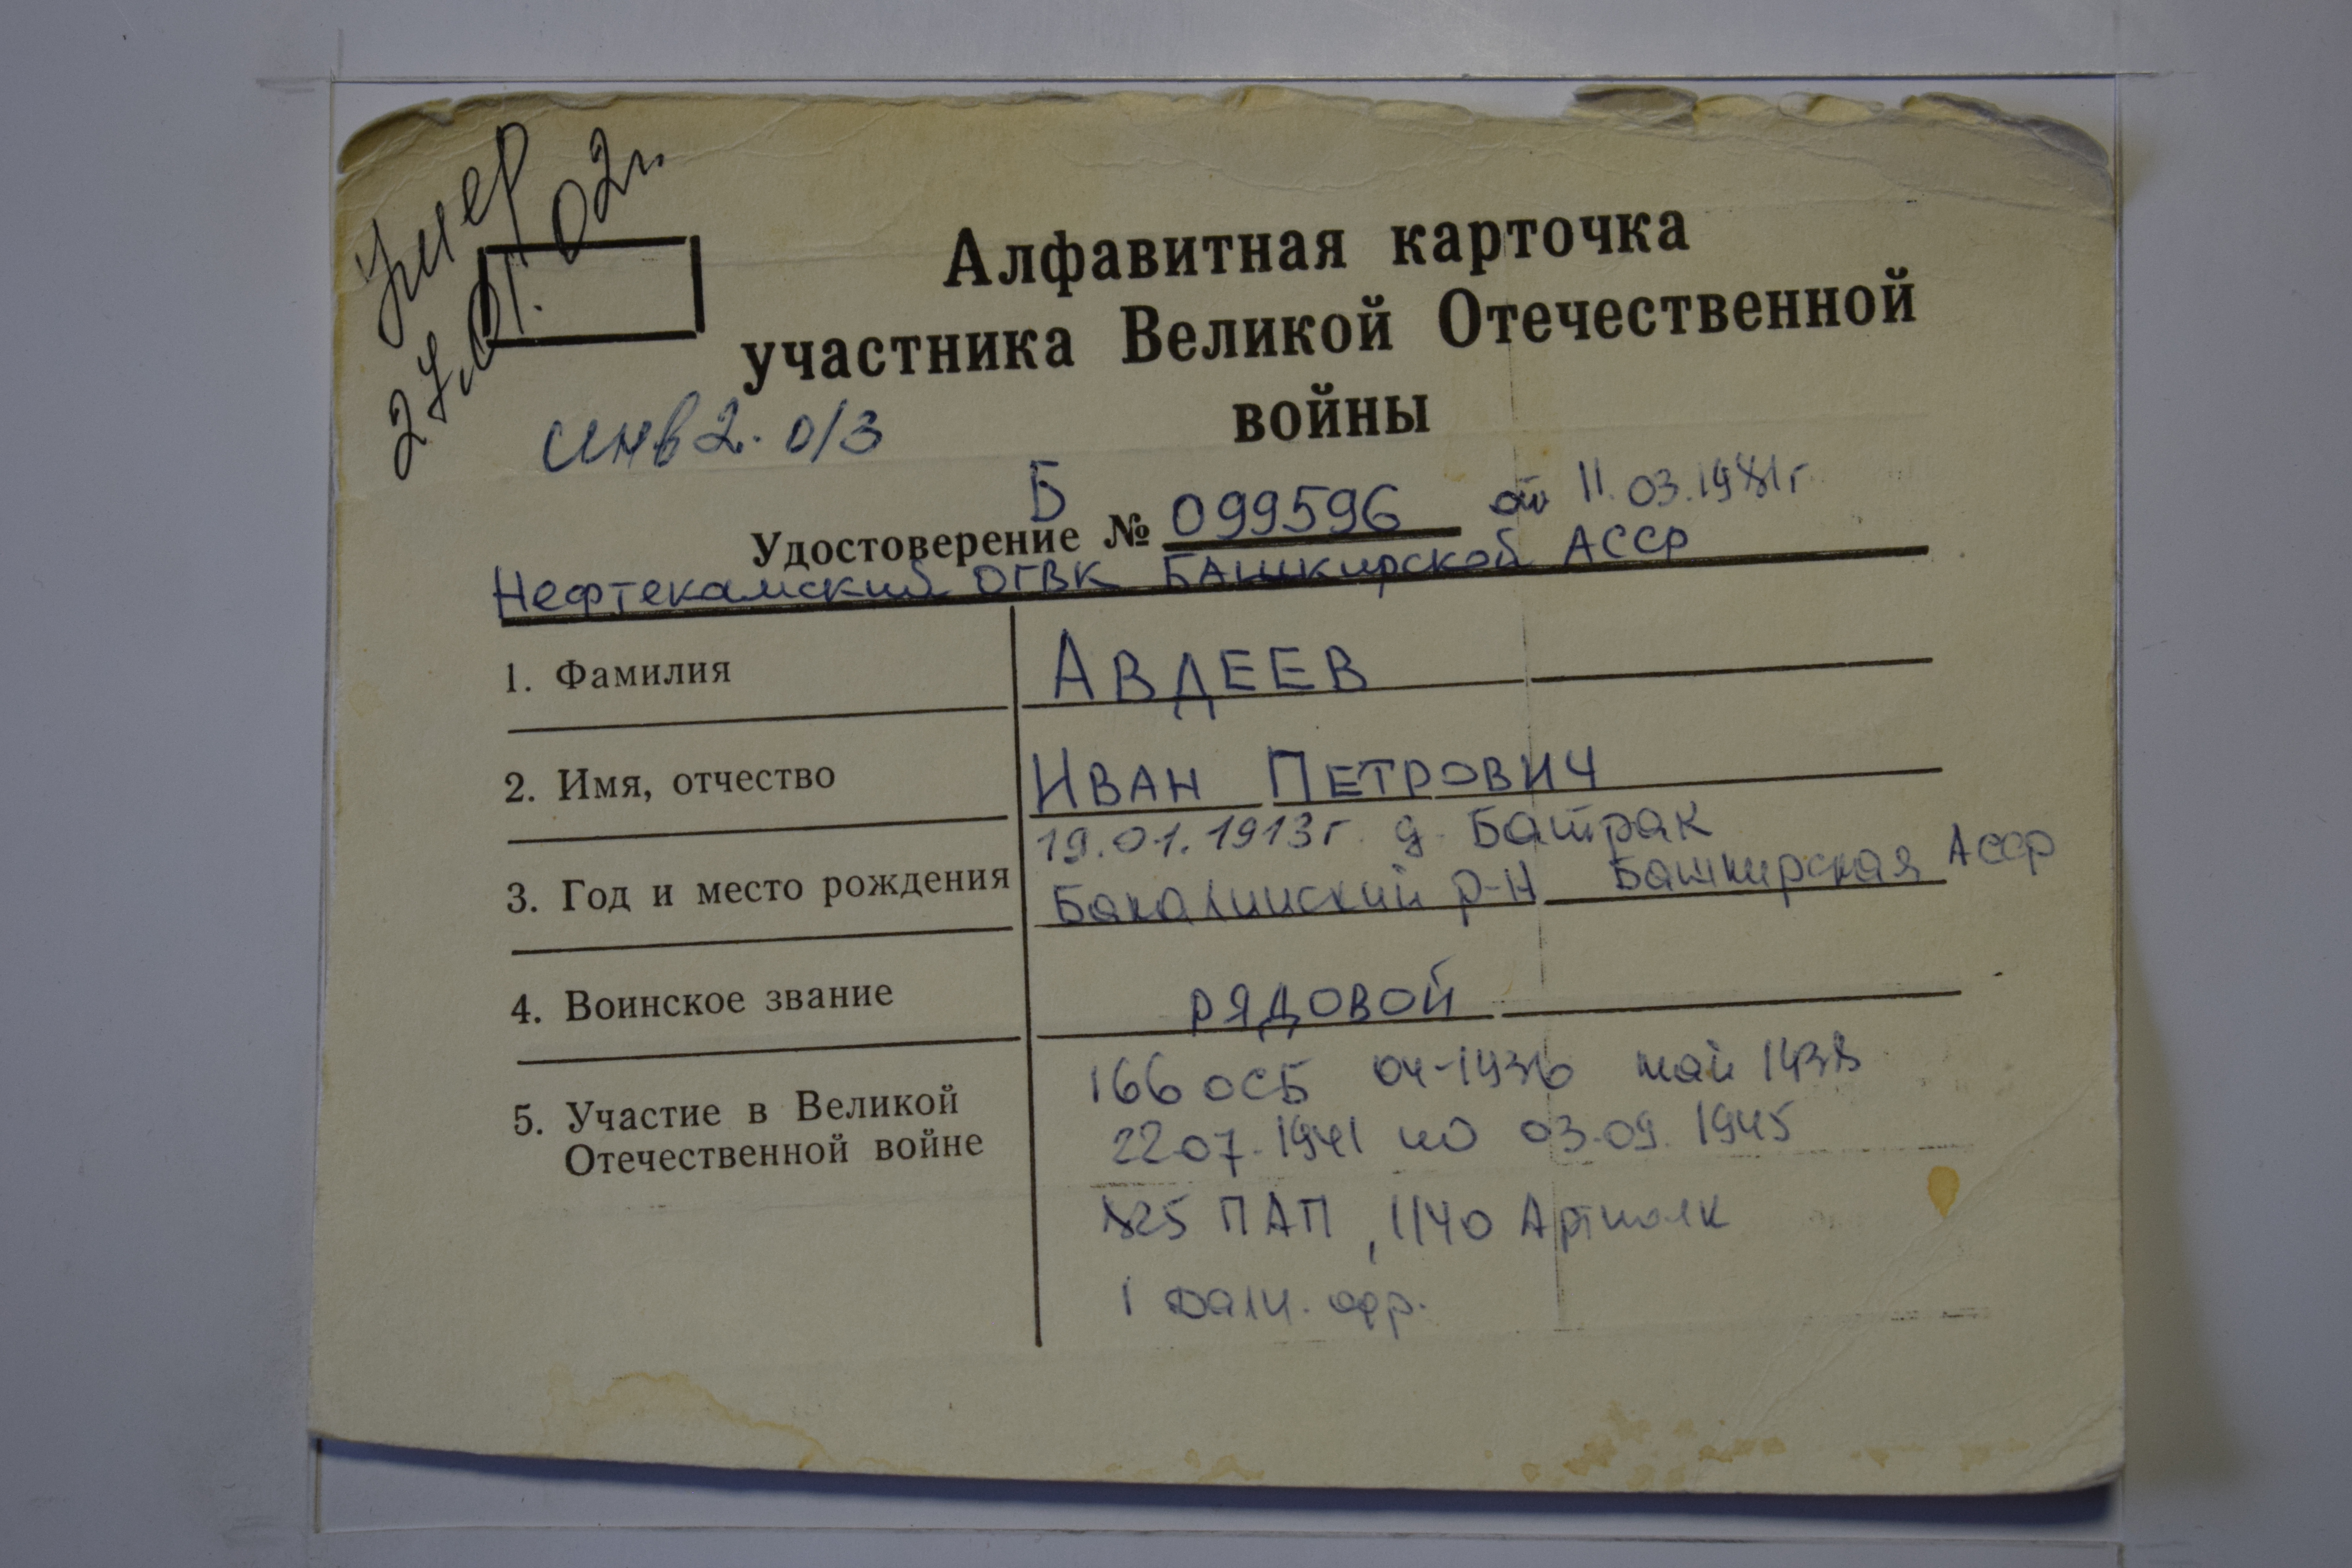 Умер
27.01.02г.
Алфавитная карточка
участника Великой Отечественной
войны
инв 2. о/з
Б
Удостоверение № 099596 от 11.03.1981г.
Нефтекамский ОГВК Башкирской АССР
1. Фамилия АВДЕЕВ
2. Имя, отчество ИВАН ПЕТРОВИЧ
19.01.1913г. д. Батрак
3. Год и место рождения Бакалинский р-н Башкирская АССР
4. Воинское звание РЯДОВОЙ
166 ОСБ 04-1936 май 1938
5. Участие в Великой
Отечественной войне
22.07.1941 по 03.09.1945
825 ПАП, 1140 Артполк
1 Дальн. фр.